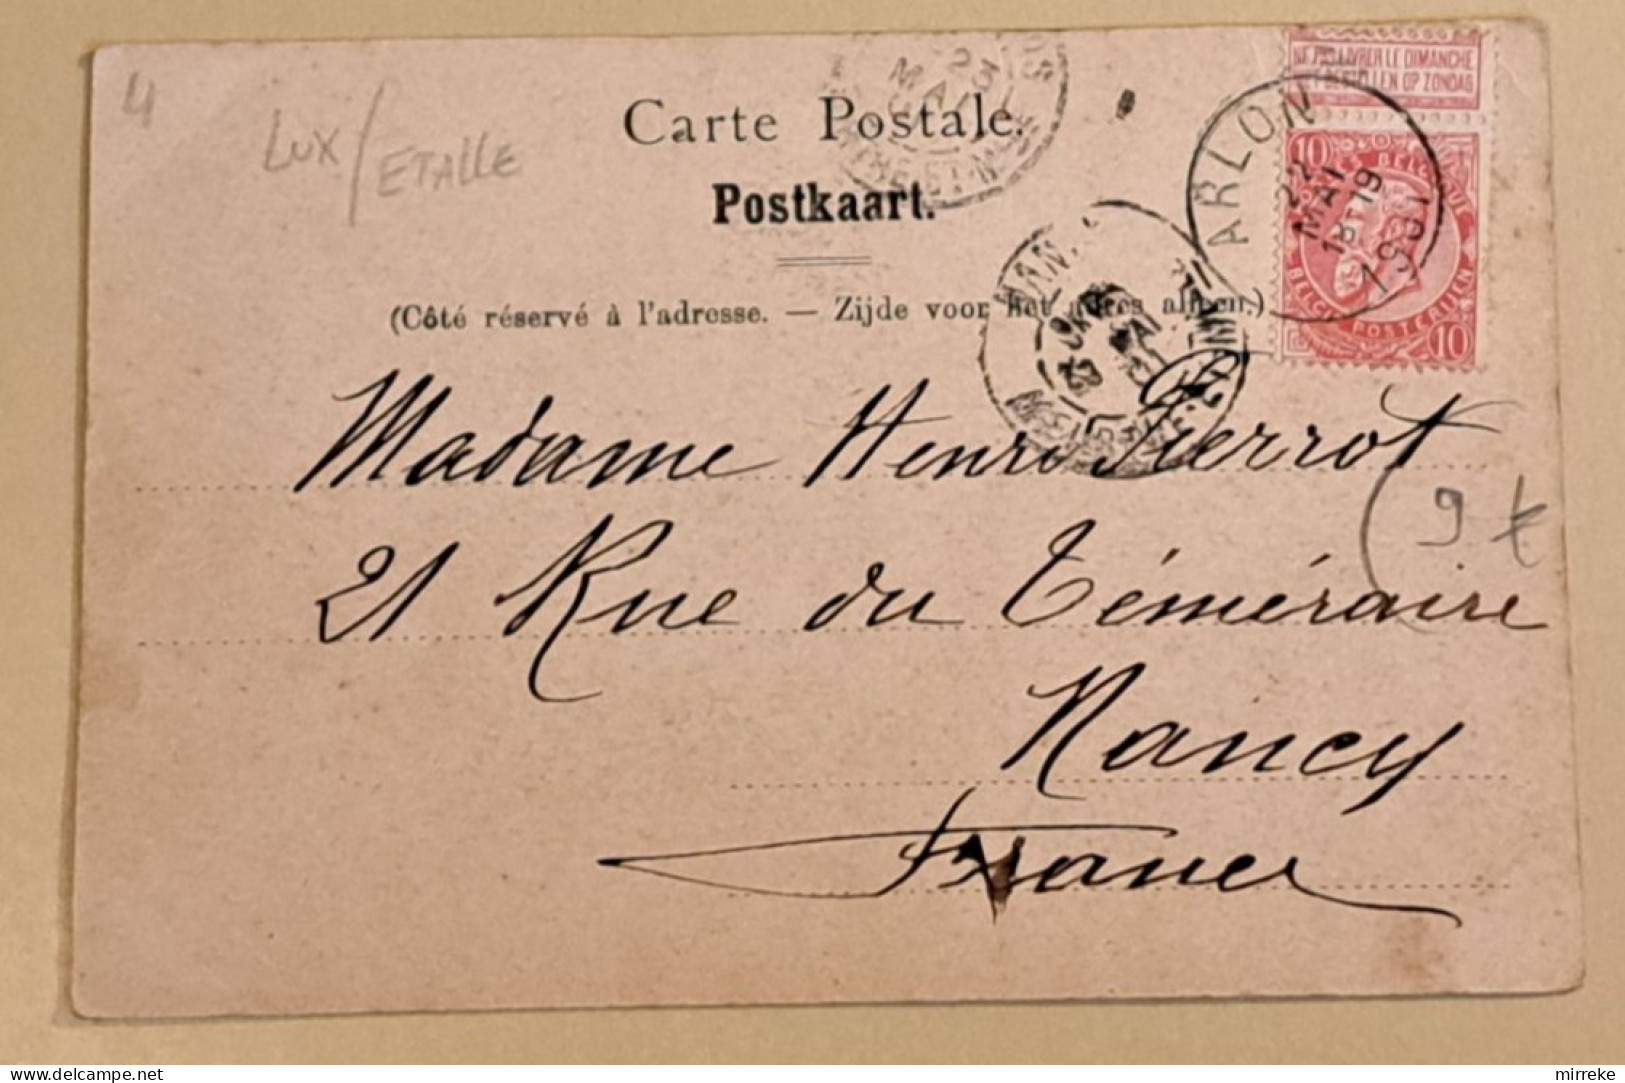 4
LUX / ETALLE
Carte Postale.
Postkaart.
(Côté réservé à l'adresse. — Zijde voor het adres alleen.)
NE PAS LIVRER LE DIMANCHE
NIET BESTELLEN OP ZONDAG
10
BELGIQUE
BELGIE POSTERIJEN 10
ARLON
22
MAI
18 19
1901
MAI
MEURTHE-ET-MELLE
Madame Henri Pierrot
21 Rue du Téméraire
9 €
Nancy
France
delcampe.net
mirreke